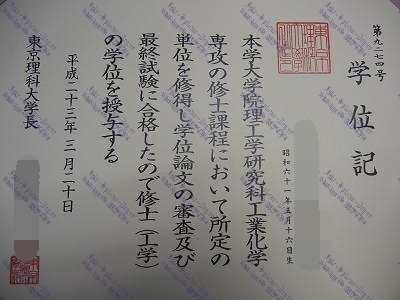 第九二七四号
学位記
昭和六十一年五月十六日生
本学大学院理工学研究科工業化学
専攻の修士課程において所定の
単位を修得し学位論文の審査及び
最終試験に合格したので修士（工学）
の学位を授与する
平成二十三年三月二十日
東京理科大学長